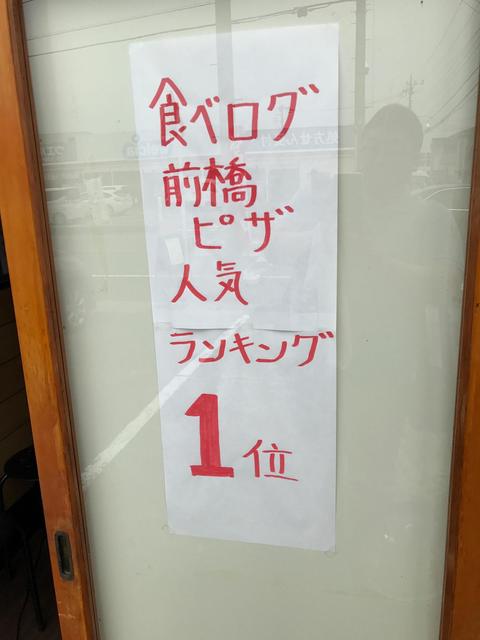 食べログ
前橋
ピザ
人気
ランキング
1位